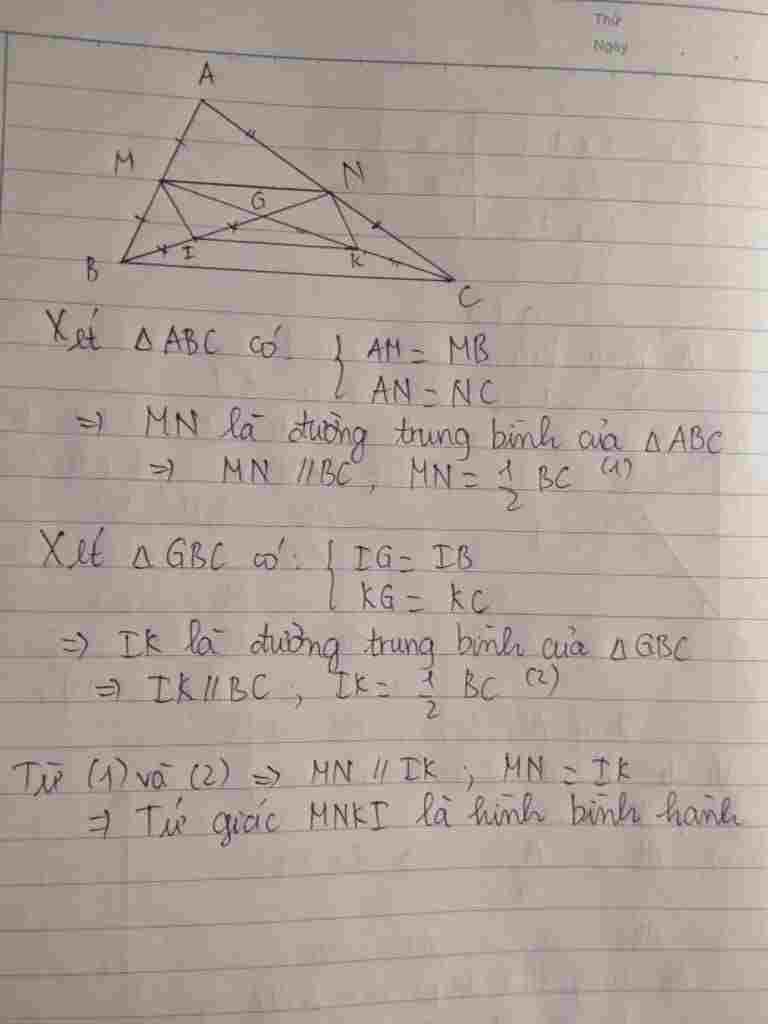 Thứ
Ngày
A
M
N
G
B
I
K
C
Xét Δ ABC có { AM = MB
AN = NC
=> MN là đường trung bình của Δ ABC
=> MN // BC, MN = 1/2 BC (1)
Xét Δ GBC có: { IG = IB
KG = KC
=> IK là đường trung bình của Δ GBC
=> IK // BC, IK = 1/2 BC (2)
Từ (1) và (2) => MN // IK ; MN = IK
=> Tứ giác MNKI là hình bình hành